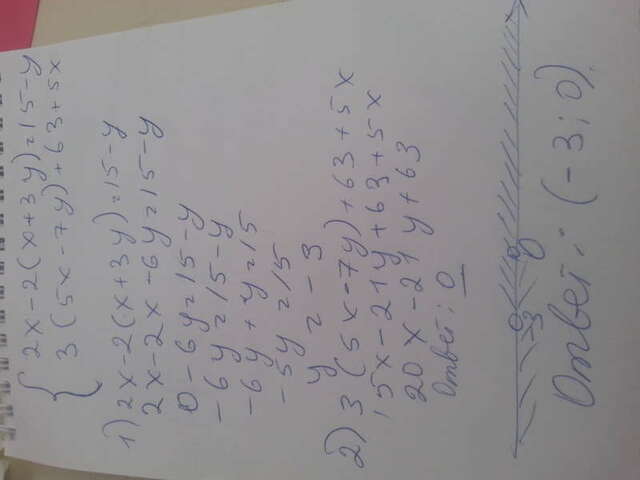 2x-2(x+3y)=15-y
3(5x-7y)+63+5x
1) 2x-2(x+3y)=15-y
2x-2x-6y=15-y
0-6y=15-y
-6y=15-y
-6y+y=15
-5y=15
y=-3
2) 3(5x-7y)+63+5x
15x-21y+63+5x
20x-21y+63
Ответ: 0
-3 0
Ответ: (-3;0).